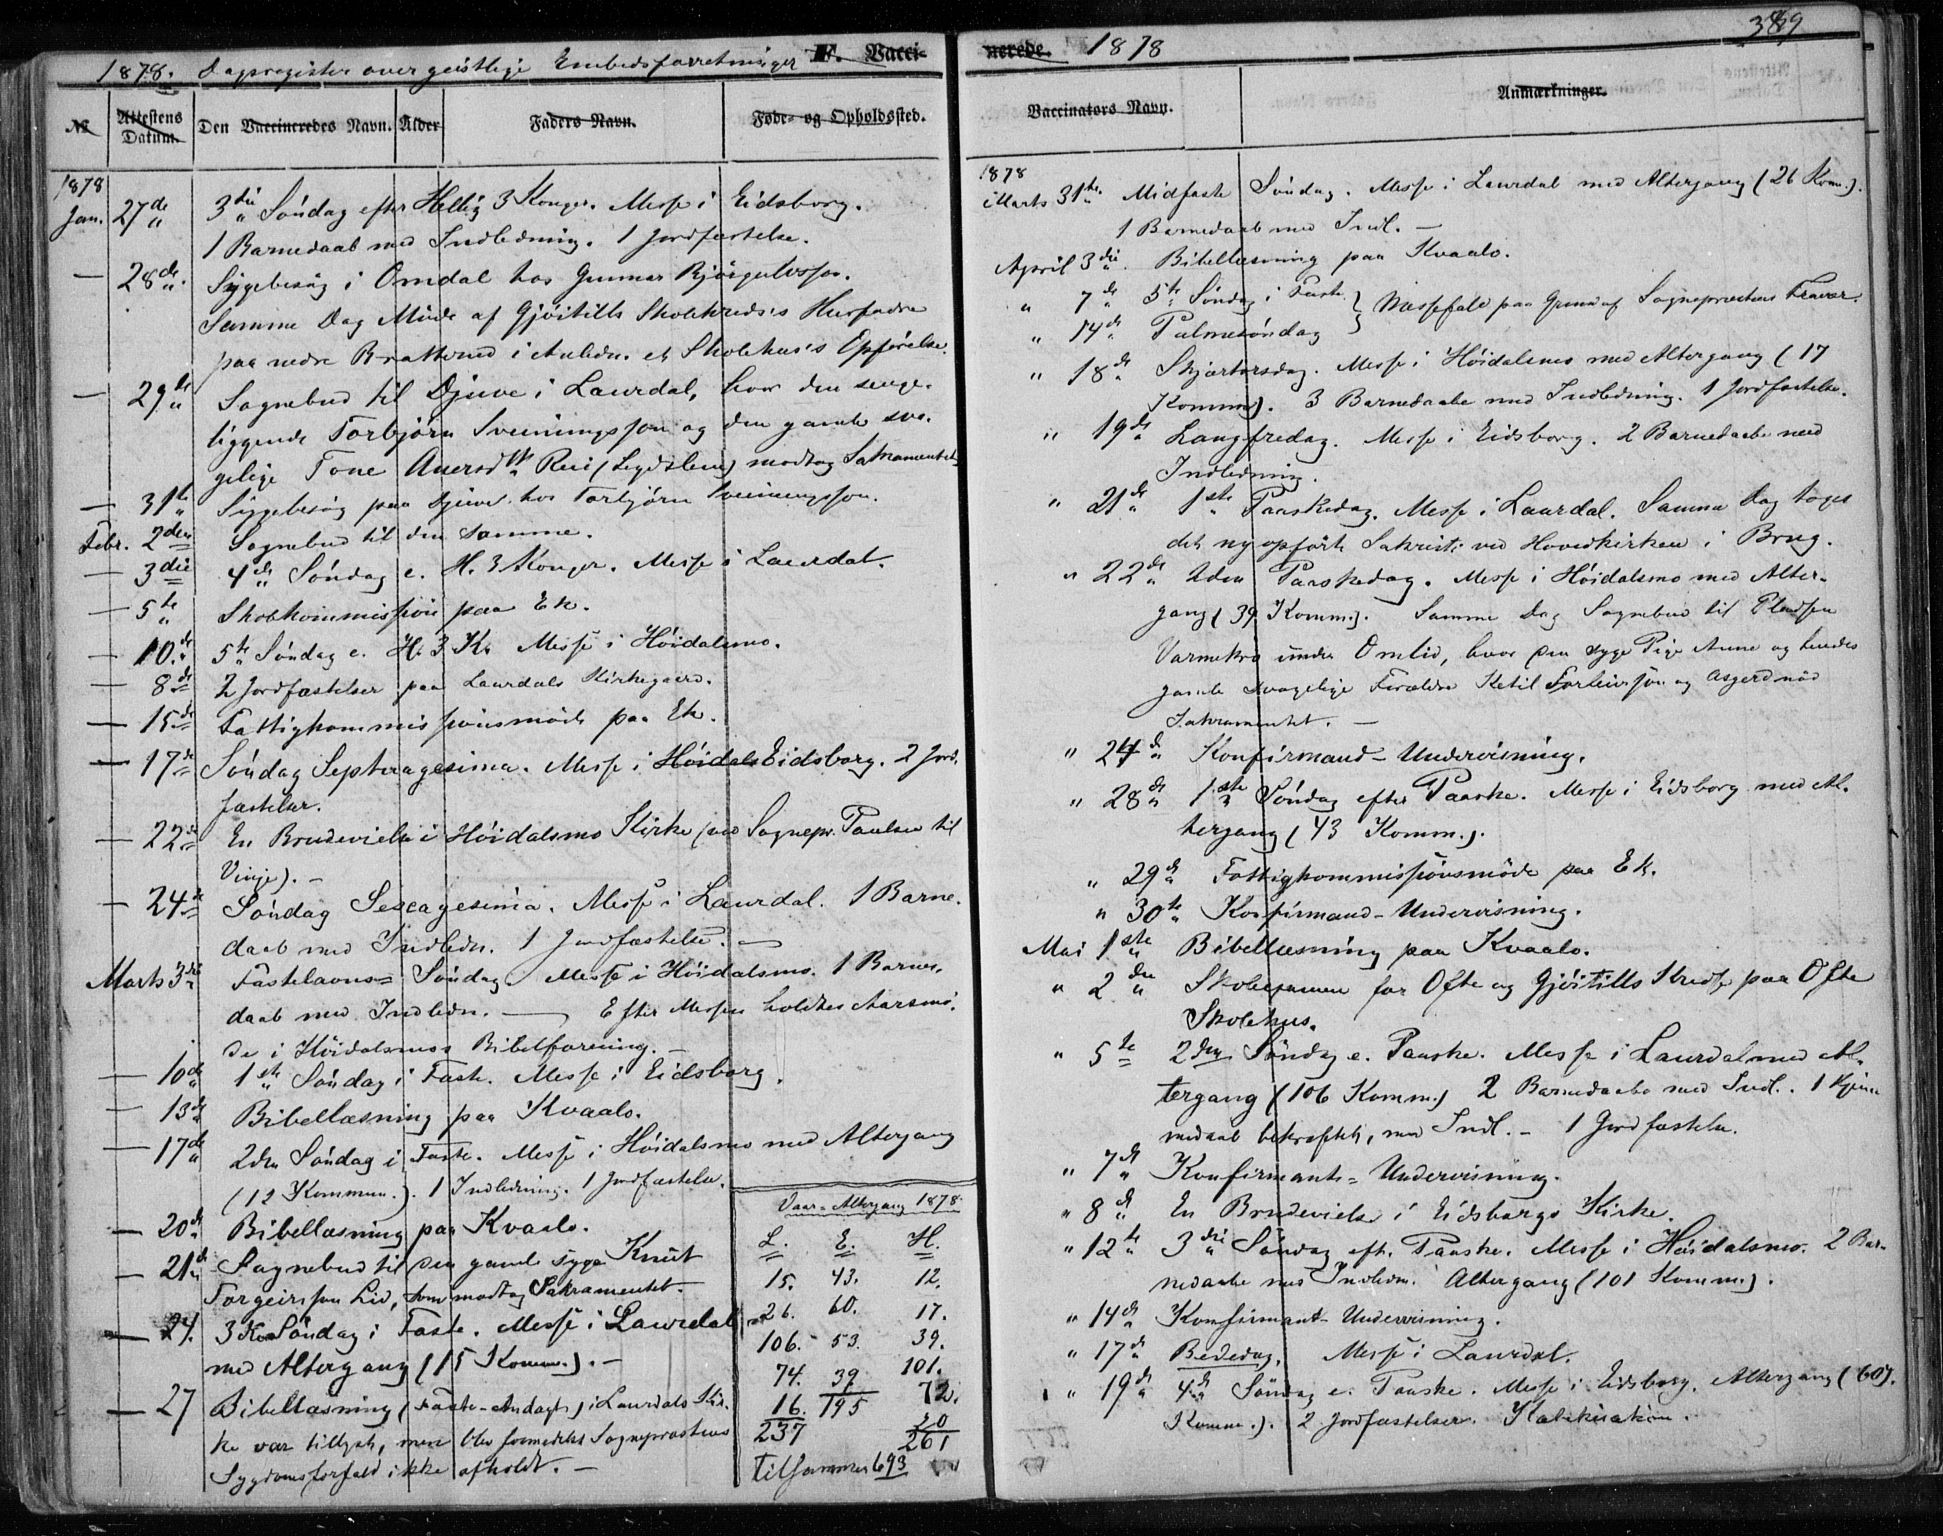 1878. Dagsregister over geistlige Embedsforretninger F. Vacci-
No. Attestens Datum. Den Vaccineredes Navn. Alder Faders Navn. Føde- og Opholdssted.
1878
Jan. 27de 3die Søndag efter Hellig 3 Konger. Messe i Eidsborg.
1 Barnedaab med Indledning. 1 Jordfæstelse.
— 28de Sygebesøg i Omdal hos Gunnar Bjørgulvsson.
Samme Dag Møde af Gjøitills Skolekreds's Husfædre
paa nedre Brattend i Anledn. et Skolehus's Opførelse.
— 29de Sognebud til Djuve i Laurdal, hvor den senge-
liggende Torbjørn Sveiningssøn og den gamle sva-
gelige Tone Aversdtr Rui (Legdslem) modtog Sakramentet
— 31te Sygebesøg paa Djuve hos Torbjørn Sveiningssøn.
Febr. 2den Sognebud til den samme.
— 3die 4de Søndag e. H. 3 Konger. Messe i Laurdal.
— 5te Skolekommission paa Ek.
— 10de 5te Søndag e. H. 3 K. Messe i Høidalsmo.
— 8de 2 Jordfæstelser paa Laurdals Kirkegaard.
— 15de Fattigkommissionsmøde paa Ek.
— 17de Søndag Septuagesima. Messe i Høidals Eidsborg. 2 Jord-
fæstelser.
— 22de En Brudevielse i Høidalsmo Kirke (ved Sognepr. Paulsen til
Vinje). —
— 24de Søndag Sexagesima. Messe i Laurdal. 1 Barne-
daab med Indledn. 1 Jordfæstelse. —
Marts 3die Fastelavns=Søndag. Messe i Høidalsmo. 1 Barne-
daab med Indledn. — Efter Messen holdtes Aarsmø-
de i Høidalsmos Bibelforening. —
— 10de 1ste Søndag i Faste. Messe i Eidsborg.
— 13de Bibellæsning paa Kvaale.
— 17de 2den Søndag i Faste. Messe i Høidalsmo med Altergang
(12 Kommun.). 1 Indledning. 1 Jordfæstelse.
— 20de Bibellæsning paa Kvaale.
— 21de Sognebud til den gamle syge Knut
Torgeirssøn Lid, som modtog Sakramentet.
— 24. 3 Søndag i Faste. Messe i Laurdal
med Altergang (15 Komm.). —
— 27 Bibellæsning (Faste-Andagt) i Laurdals Kir-
ke var tillyst, men blev formedelst Sognepræstens
Sygdomsforfald ikke afholdt. —
Vaar-Altergang 1878.
L. E. H.
15. 43. 12.
26. 60. 17.
106. 53. 39.
74. 39 101.
16. 195 72.
237 20
261
tilsammen 693
389
nerede. 1878
Vaccinators Navn. Anmærkninger.
1878
Marts 31te Midfaste Søndag. Messe i Laurdal med Altergang (26 Kom.).
1 Barnedaab med Indl. —
April 3die Bibellæsning paa Kvaale.
" 7de 5te Søndag i Faste } Messefald paa Grund af Sognepræstens Fravær.
" 14de Palmesøndag
" 18de Skjærtorsdag. Messe i Høidalsmo med Altergang (17
Komm.). 3 Barnedaabe med Indledning. 1 Jordfæstelse.
" 19de Langfredag. Messe i Eidsborg. 2 Barnedaabe med
Indledning.
" 21de 1ste Paaskedag. Messe i Laurdal. Samme Dag toges
det ny opførte Sakristi ved Hovedkirken i Brug.
" 22de 2den Paaskedag. Messe i Høidalsmo med Alter-
gang (39 Komm.). Samme Dag Sognebud til Pladsen
Varmekra under Omlid, hvor den syge Pige Anne og hendes
gamle svagelige Forældre Ketil Torleivssøn og Asgerd nød
Sakramentet. —
" 24de Konfirmand-Undervisning.
" 28de 1ste Søndag efter Paaske. Messe i Eidsborg med Al-
tergang (43 Komm.).
" 29de Fattigkommissionsmøde paa Ek.
" 30te Konfirmand-Undervisning.
Mai 1ste Bibellæsning paa Kvaale.
" 2den Skoleexamen for Ofte og Gjøitills Kreds paa Ofte
Skolehus.
" 5te 2den Søndag e. Paaske. Messe i Laurdal med Al-
tergang (106 Komm.) 2 Barnedaabe med Indl. 1 Hjem-
medaab bekræftet, med Indl. — 1 Jordfæstelse.
" 7de Konfirmant=Undervisning.
" 8de En Brudevielse i Eidsborgs Kirke.
" 12te 3die Søndag eft. Paaske. Messe i Høidalsmo. 2 Bar-
nedaabe med Indledn. Altergang (101 Komm.).
" 14de Konfirmant-Undervisning.
" 17de Bededag. Messe i Laurdal.
" 19de 4de Søndag e. Paaske. Messe i Eidsborg. Altergang (60).
Komm.). 2 Jordfæstelser. Katekisation.